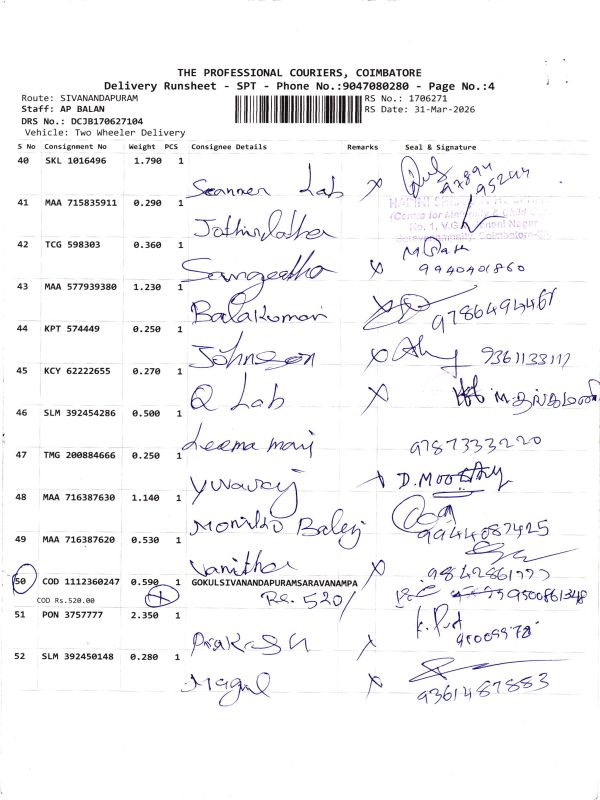 THE PROFESSIONAL COURIERS, COIMBATORE
Delivery Runsheet - SPT - Phone No.:9047080280 - Page No.:4
Route: SIVANANDAPURAM
RS No.: 1706271
Staff: AP BALAN
RS Date: 31-Mar-2026
DRS No.: DCJB170627104
Vehicle: Two Wheeler Delivery
S No Consignment No Weight PCS Consignee Details Remarks Seal & Signature
40 SKL 1016496 1.790 1
Scanner Lab x 97894 95244
41 MAA 715835911 0.290 1
No. 1, V.G.
42 TCG 598303 0.360 1
Sangeetha x 9940401860
43 MAA 577939380 1.230 1
Balakumari 9786494461
44 KPT 574449 0.250 1
Johnson x 9361133117
45 KCY 62222655 0.270 1
Q Lab x
46 SLM 392454286 0.500 1
Leema mary 9787333220
47 TMG 200884666 0.250 1
Yuvaraj x D. Moorthy
48 MAA 716387630 1.140 1
Balaji 9944087425
49 MAA 716387620 0.530 1
Vanitha x
50 COD 1112360247 0.590 1 GOKULSIVANANDAPURAMSARAVANAMPA
COD Rs.520.00 Rs. 520/ 9500861348
51 PON 3757777 2.350 1
Prakash x
52 SLM 392450148 0.280 1
Magul x 9361487883